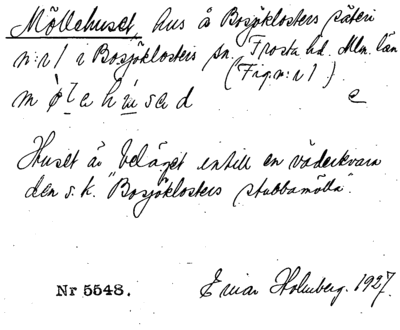 Möllehuset, hus å Bosjöklosters säteri
n:r 1 i Bosjöklosters sn. Frosta hd. Mlm. län
(Fig. n:r 1).
m ö̀ l e h ú s e d e
Huset är beläget intill en väderkvarn
den s.k. "Bosjöklosters stubbamölla".
Nr 5548. Einar Holmberg. 1927.